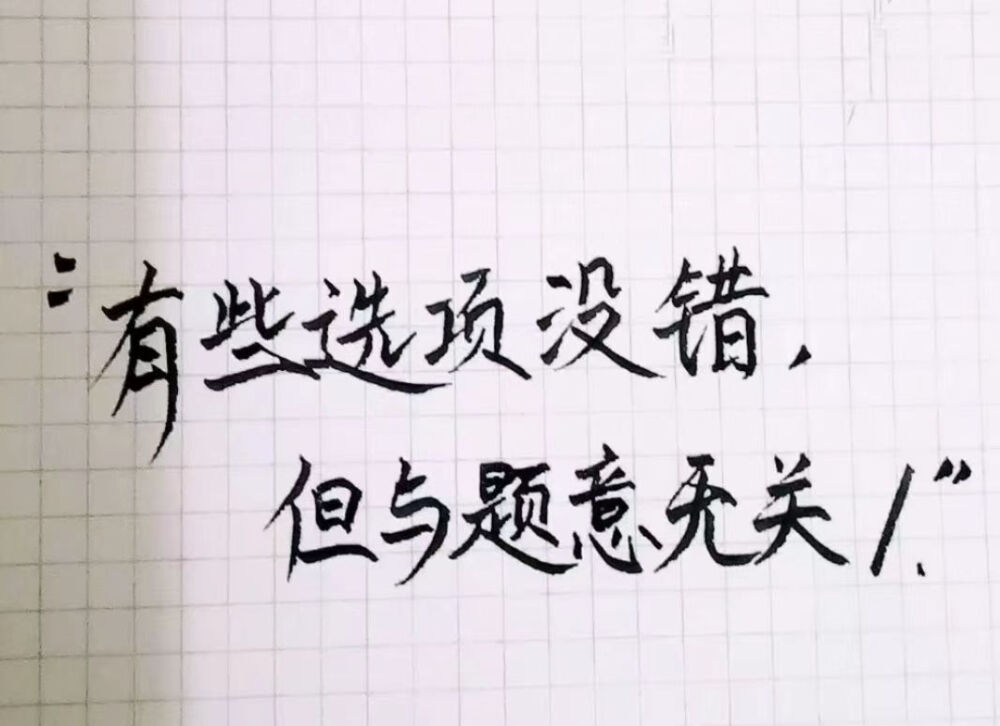 “有些选项没错，
但与题意无关！”